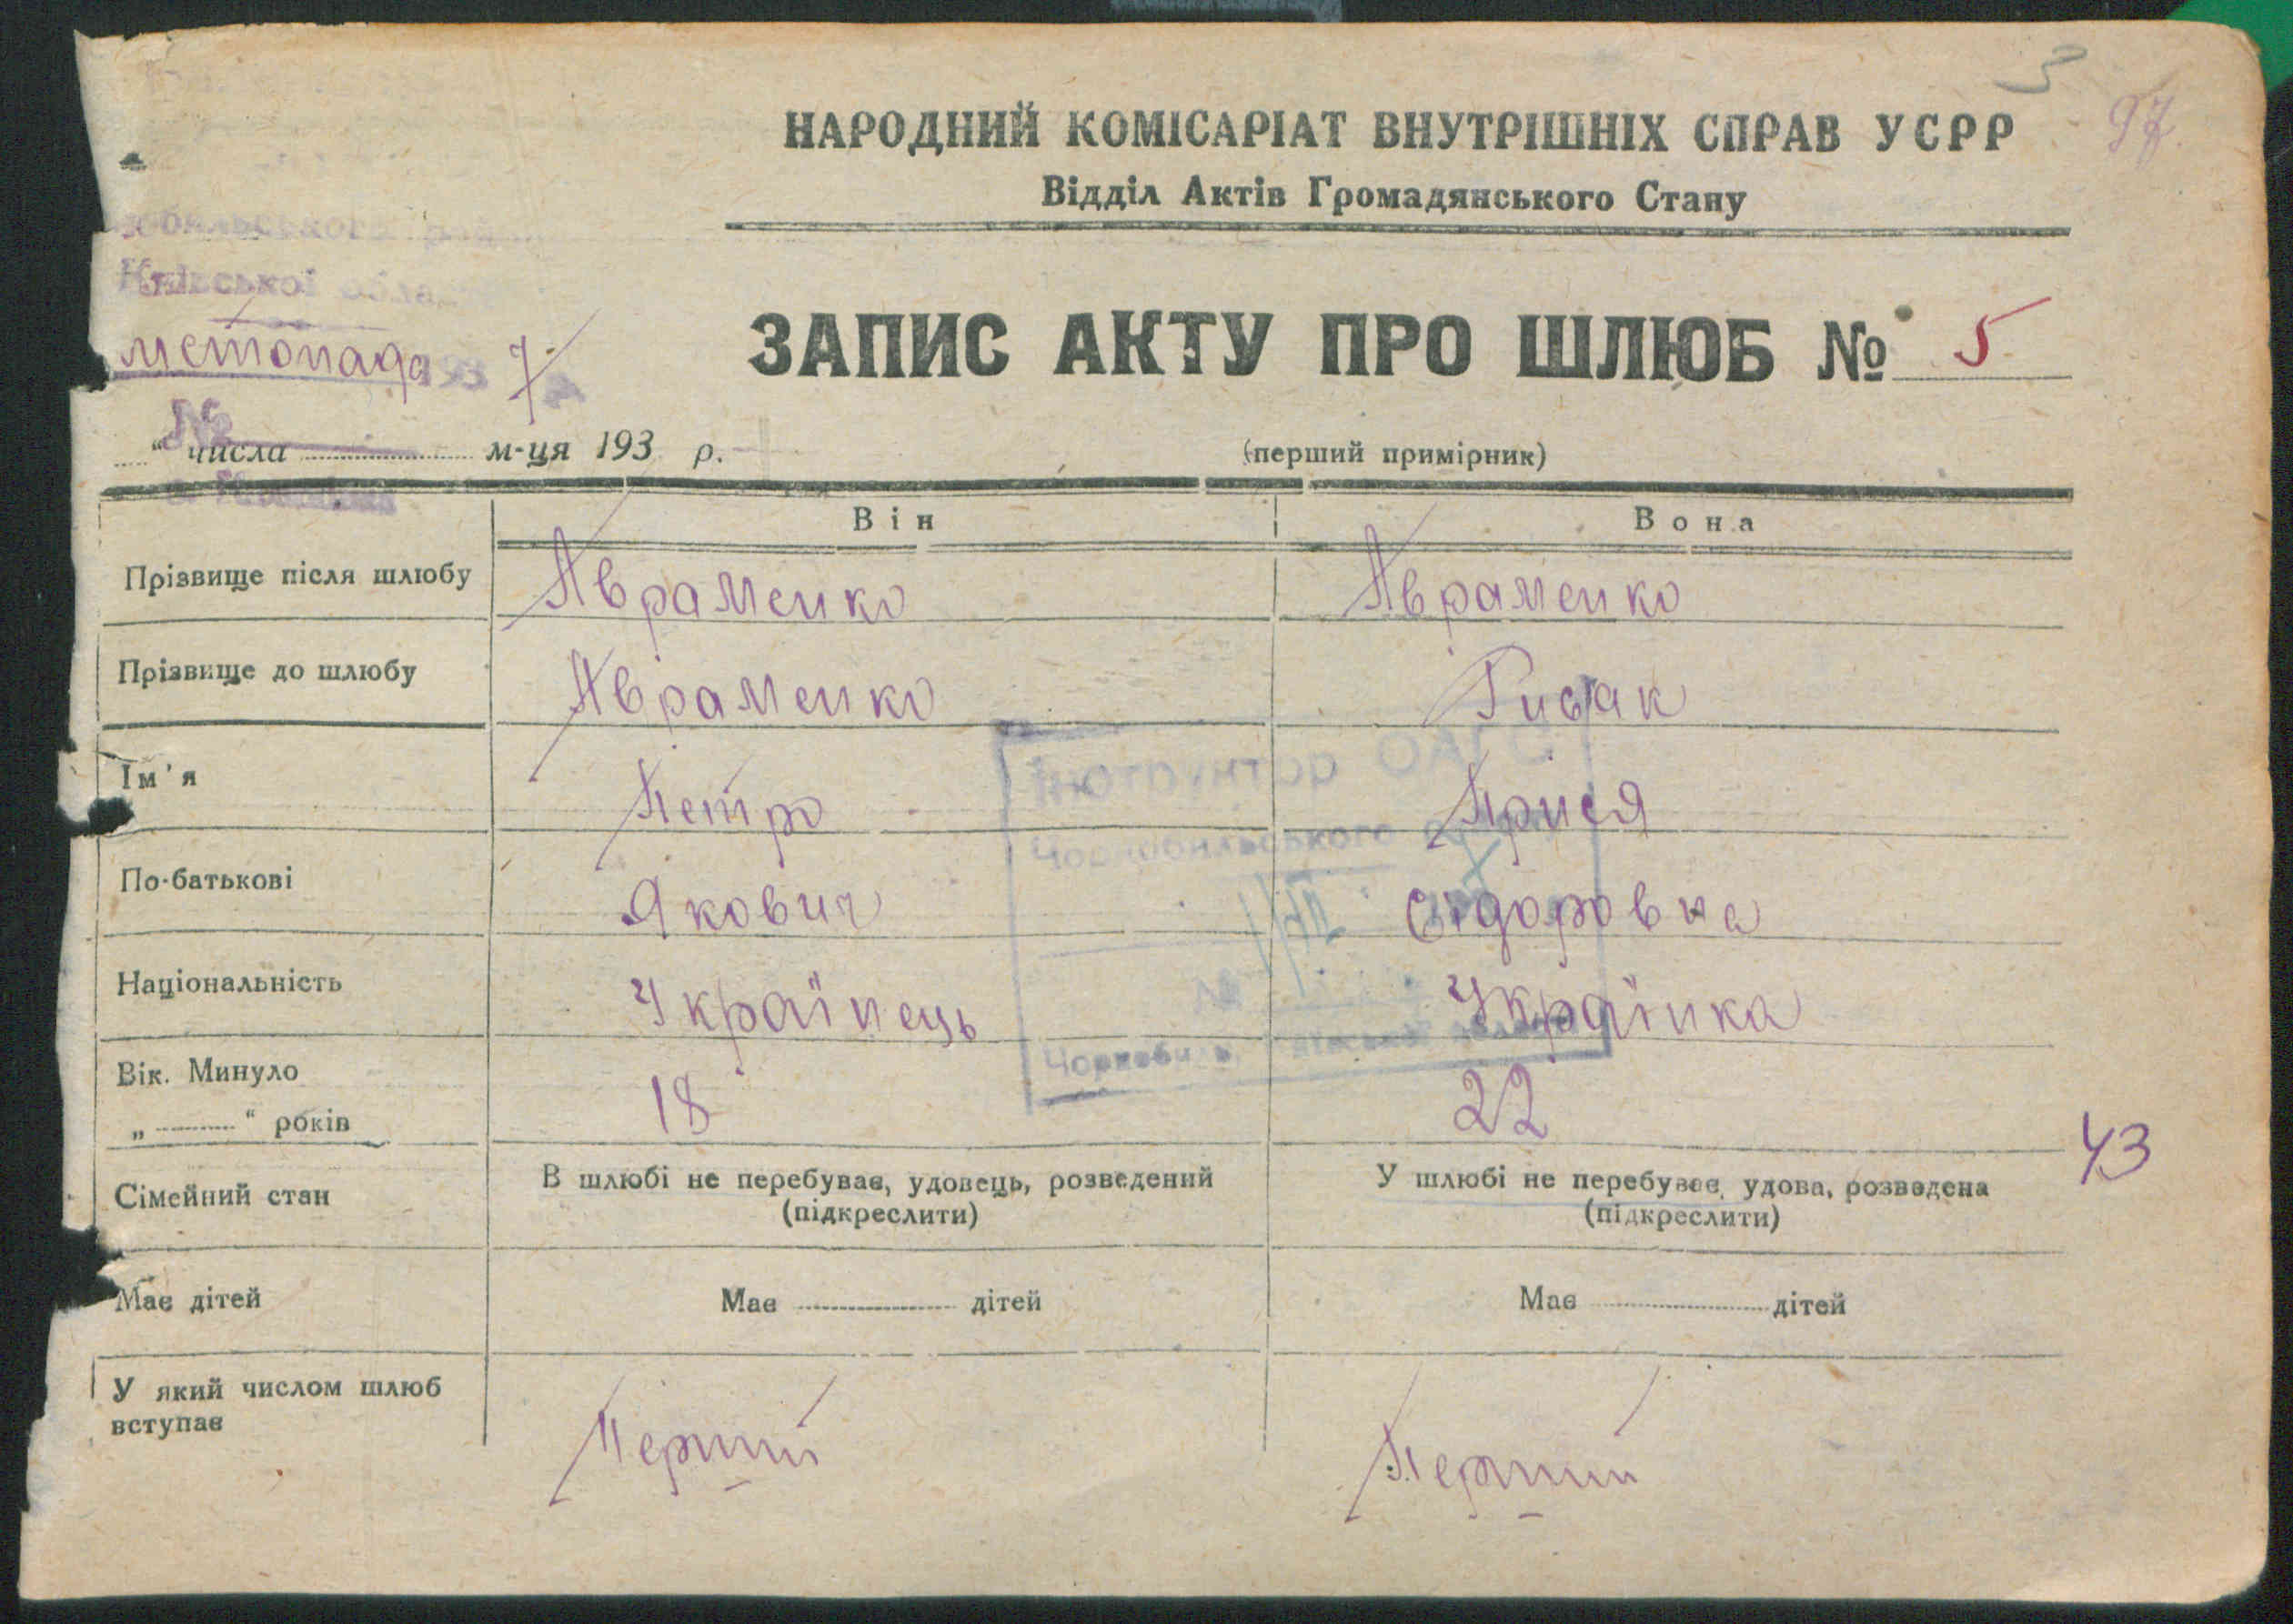 3
97
НАРОДНИЙ КОМІСАРІАТ ВНУТРІШНІХ СПРАВ УСРР
Відділ Актів Громадянського Стану
Київської
ЗАПИС АКТУ ПРО ШЛЮБ № 5
листопада 193 7
№
" числа м-ця 193 р.
(перший примірник)
Він Вона
Прізвище після шлюбу Авраменко Авраменко
Прізвище до шлюбу Авраменко
Ім'я Петро Прися
По-батькові Якович Сідоровна
Національність Українець Українка
Вік. Минуло
„ “ років 18 22
43
Сімейний стан В шлюбі не перебуває, удовець, розведений (підкреслити) У шлюбі не перебуває, удова, розведена (підкреслити)
Має дітей Має дітей Має дітей
У який числом шлюб вступає Перший Перший
Інструктор ОАГС
Чорнобильського
№
Чорнобиль, Київської